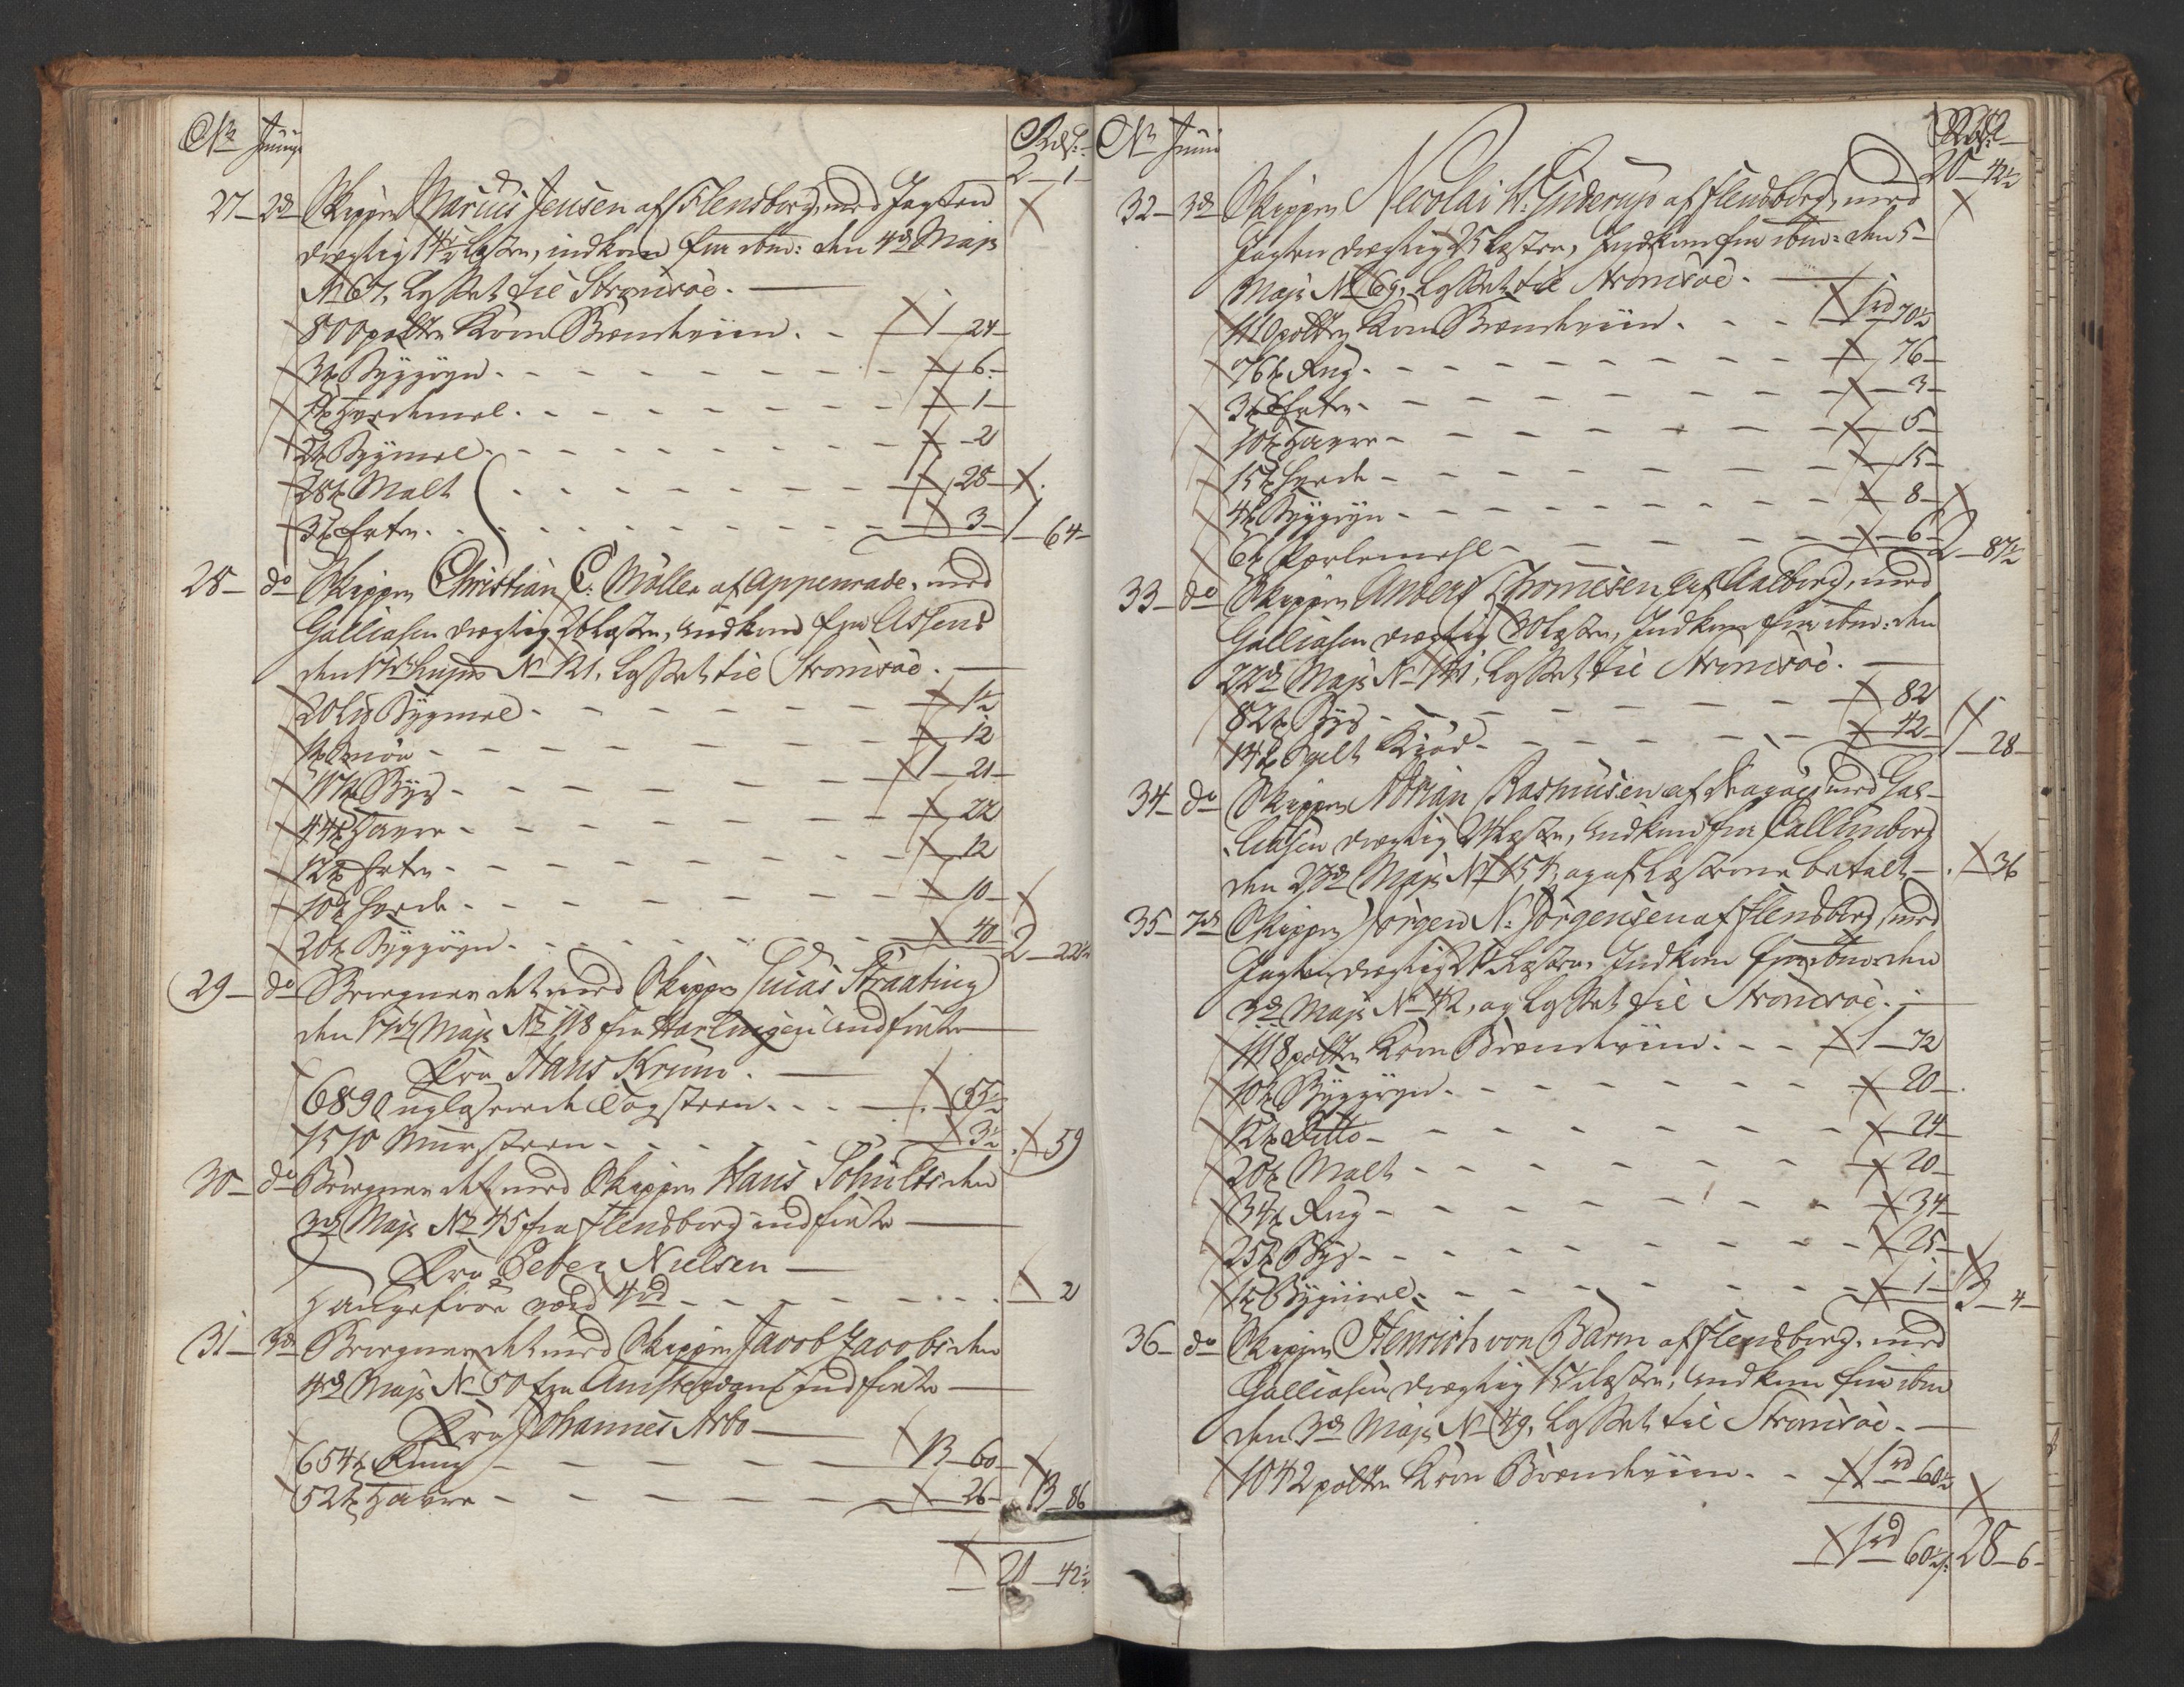 No Junij Rdr
2 1
27 2d Skipper Marcus Jensen af Flensborg, med Jagten
drægtig 14½ Læster, indkom fra ibm: den 4d Maji
No 67, Losset til Strömsöe.
800 potter Korn Brændeviin. 1 24
3t Byggryn. 6
1t Hvedemel. 1
2t Bygmel 2
28t Malt 28
3t Erter. 3 1 64
28 do Skipper Christian C: Möller af Appenrade, med
Galliasen drægtig 26 Læster, indkom fra Assens
den 17d hujus No 121, Losset til Strömsöe.
20 Lis Bygmel 1½
1t Smör 12
117t Byg 1 21
44t Havre 22
12t Erter 12
10t Hvede 10
20t Byggryn. 40 2 22½
29 do Beregner det med Skipper Lucas Straating
den 17d Maji No 118 fra Harlingen indförte
Fra Hans Krum.
6890 uglaserede Tagsteen. 55½
1510 Muursteen 3½ 59
30 do Beregner det med Skipper Hans Schultz den
3d Maji No 45 fra Flensborg indförte
Fra Peber Nielsen
værd 4rd 2
31 3d Beregner det med Skipper Jacob Jacobs den
4d Maji No 50 fra Amsterdam indförte
Fra Johannes Arbo
654t Rug 13 60
52t Havre 26 13 86
21 42½
No Junij Rdr
20 42½
32 3d Skipper Nicolai H: Jnderup af Flensborg, med
Jagten drægtig 25 Læster, Indkom fra ibm: den 5
Maji No 69, Losset til Strömsöe.
1110 potter Korn Brændeviin. 1rd 70½
76t Rug. 76
3t Erter 3
10t Havre 5
15t Hvede 15
4t Byggryn 8
6t Perlemehl 6 2 87½
33 do Skipper Anders Thomesen af Aalborg, med
Galliasen drægtig 20 Læster, Indkom fra ibm: den
22d Maji No 141, Losset til Strömsöe.
82t Byg 82
14t Salt Kiöd 42 1 28
34 do Skipper Adrian Rasmusen af Dragöe med Gal-
liasen drægtig 24 Læster, indkom fra Callunborg
den 23d Maji No 154, og af Læsterne betalt 36
35 7d Skipper Jörgen N: Jörgensen af Flensborg, med
Jagten drægtig Læster, Indkom fra ibm: den
3d Maji No 42, og Losset til Strömsöe.
1118 potter Korn Brændeviin. 1 72
10t Byggryn. 20
12t Ditto 24
20t Malt 20
34t Rug 34
25t Byg 25
1t Bygmel 1 3 4
36 do Skipper Henrich von Barm af Flensborg, med
Galliasen drægtig 15½ Læster, indkom fra ibm
den 3d Maji No 49, Losset til Strömsöe.
1042 potter Korn Brændeviin. 1rd 60½
1rd 60½ 28 6